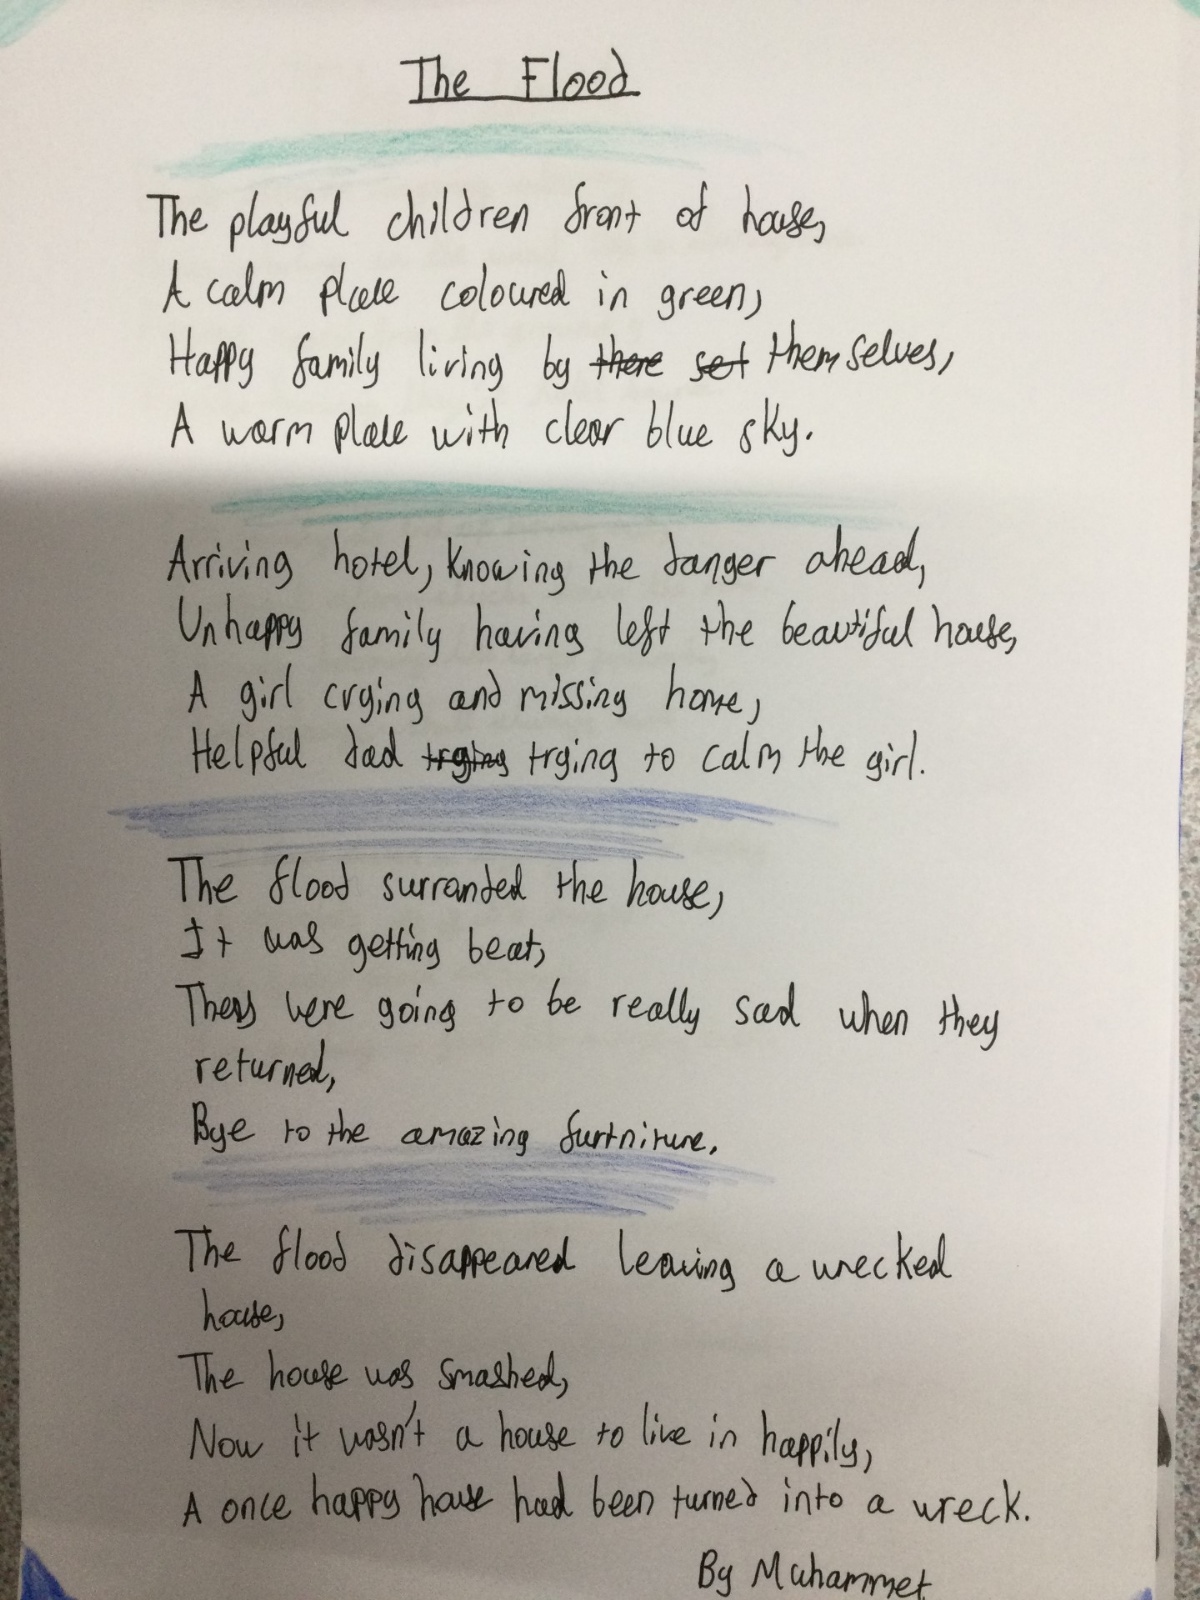 The Flood
The playful children front of house,
A calm place coloured in green,
Happy family living by there set themselves,
A warm place with clear blue sky.
Arriving hotel, knowing the danger ahead,
Unhappy family having left the beautiful house,
A girl crying and missing home,
Helpful dad trying trying to calm the girl.
The flood surranded the house,
It was getting beat,
They were going to be really sad when they
returned,
Bye to the amazing furtniture.
The flood disappeared leaving a wrecked
house,
The house was smashed,
Now it wasn't a house to live in happily,
A once happy house had been turned into a wreck.
By Muhammet